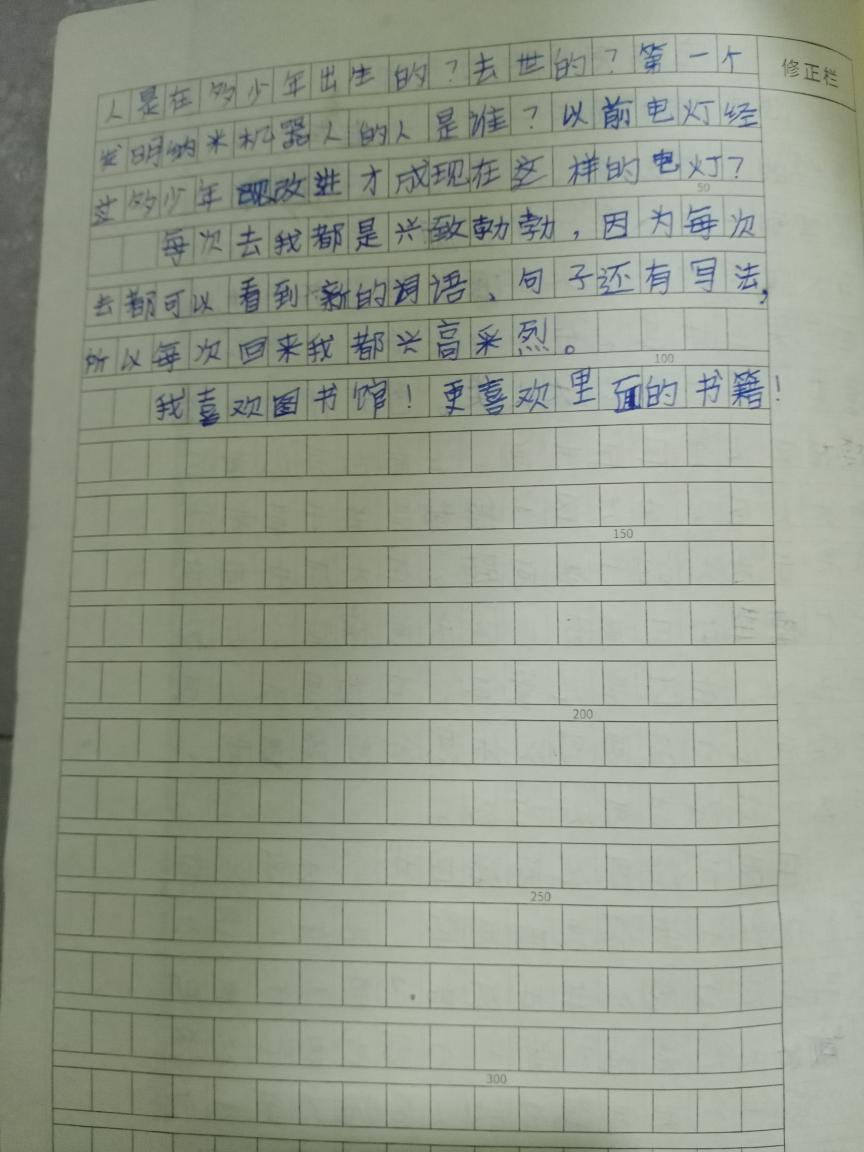 人是在多少年出生的？去世的？第一个
修正栏
发明纳米机器人的人是谁？以前电灯经
过多少年改进才成现在这样的电灯？
50
每次去我都是兴致勃勃，因为每次
去都可以看到新的词语、句子还有写法，
所以每次回来我都兴高采烈。
100
我喜欢图书馆！更喜欢里面的书籍！
150
200
250
300